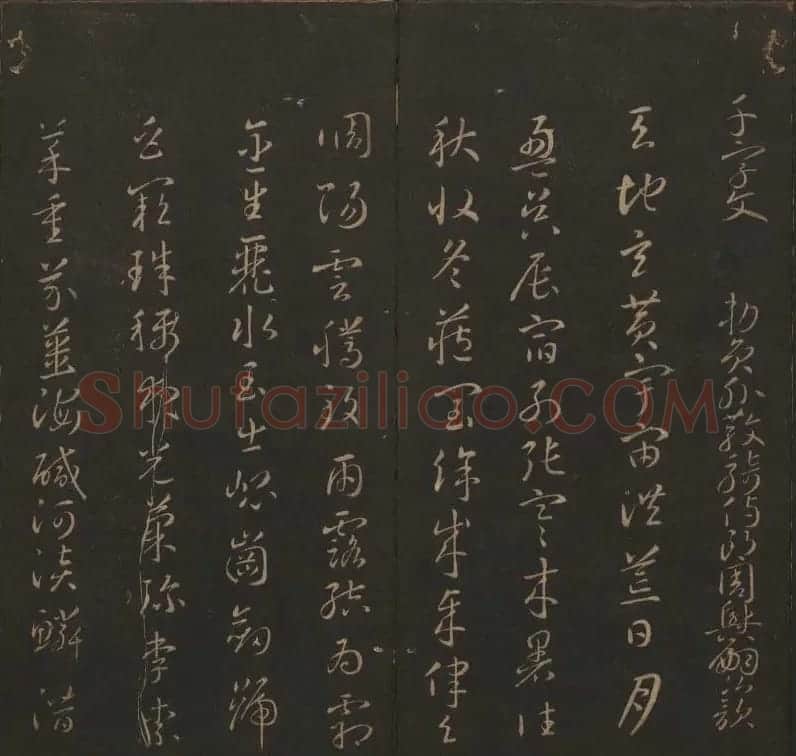 千字文 勅員外散騎侍郎周興嗣次韻
天地玄黃宇宙洪荒日月
盈昃辰宿列張寒來暑往
秋收冬藏閏餘成歲律呂
調陽雲騰致雨露結為霜
金生麗水玉出崑崗劍號
巨闕珠稱夜光菓珍李柰
菜重芥薑海鹹河淡鱗潛
Shufaziliao.COM